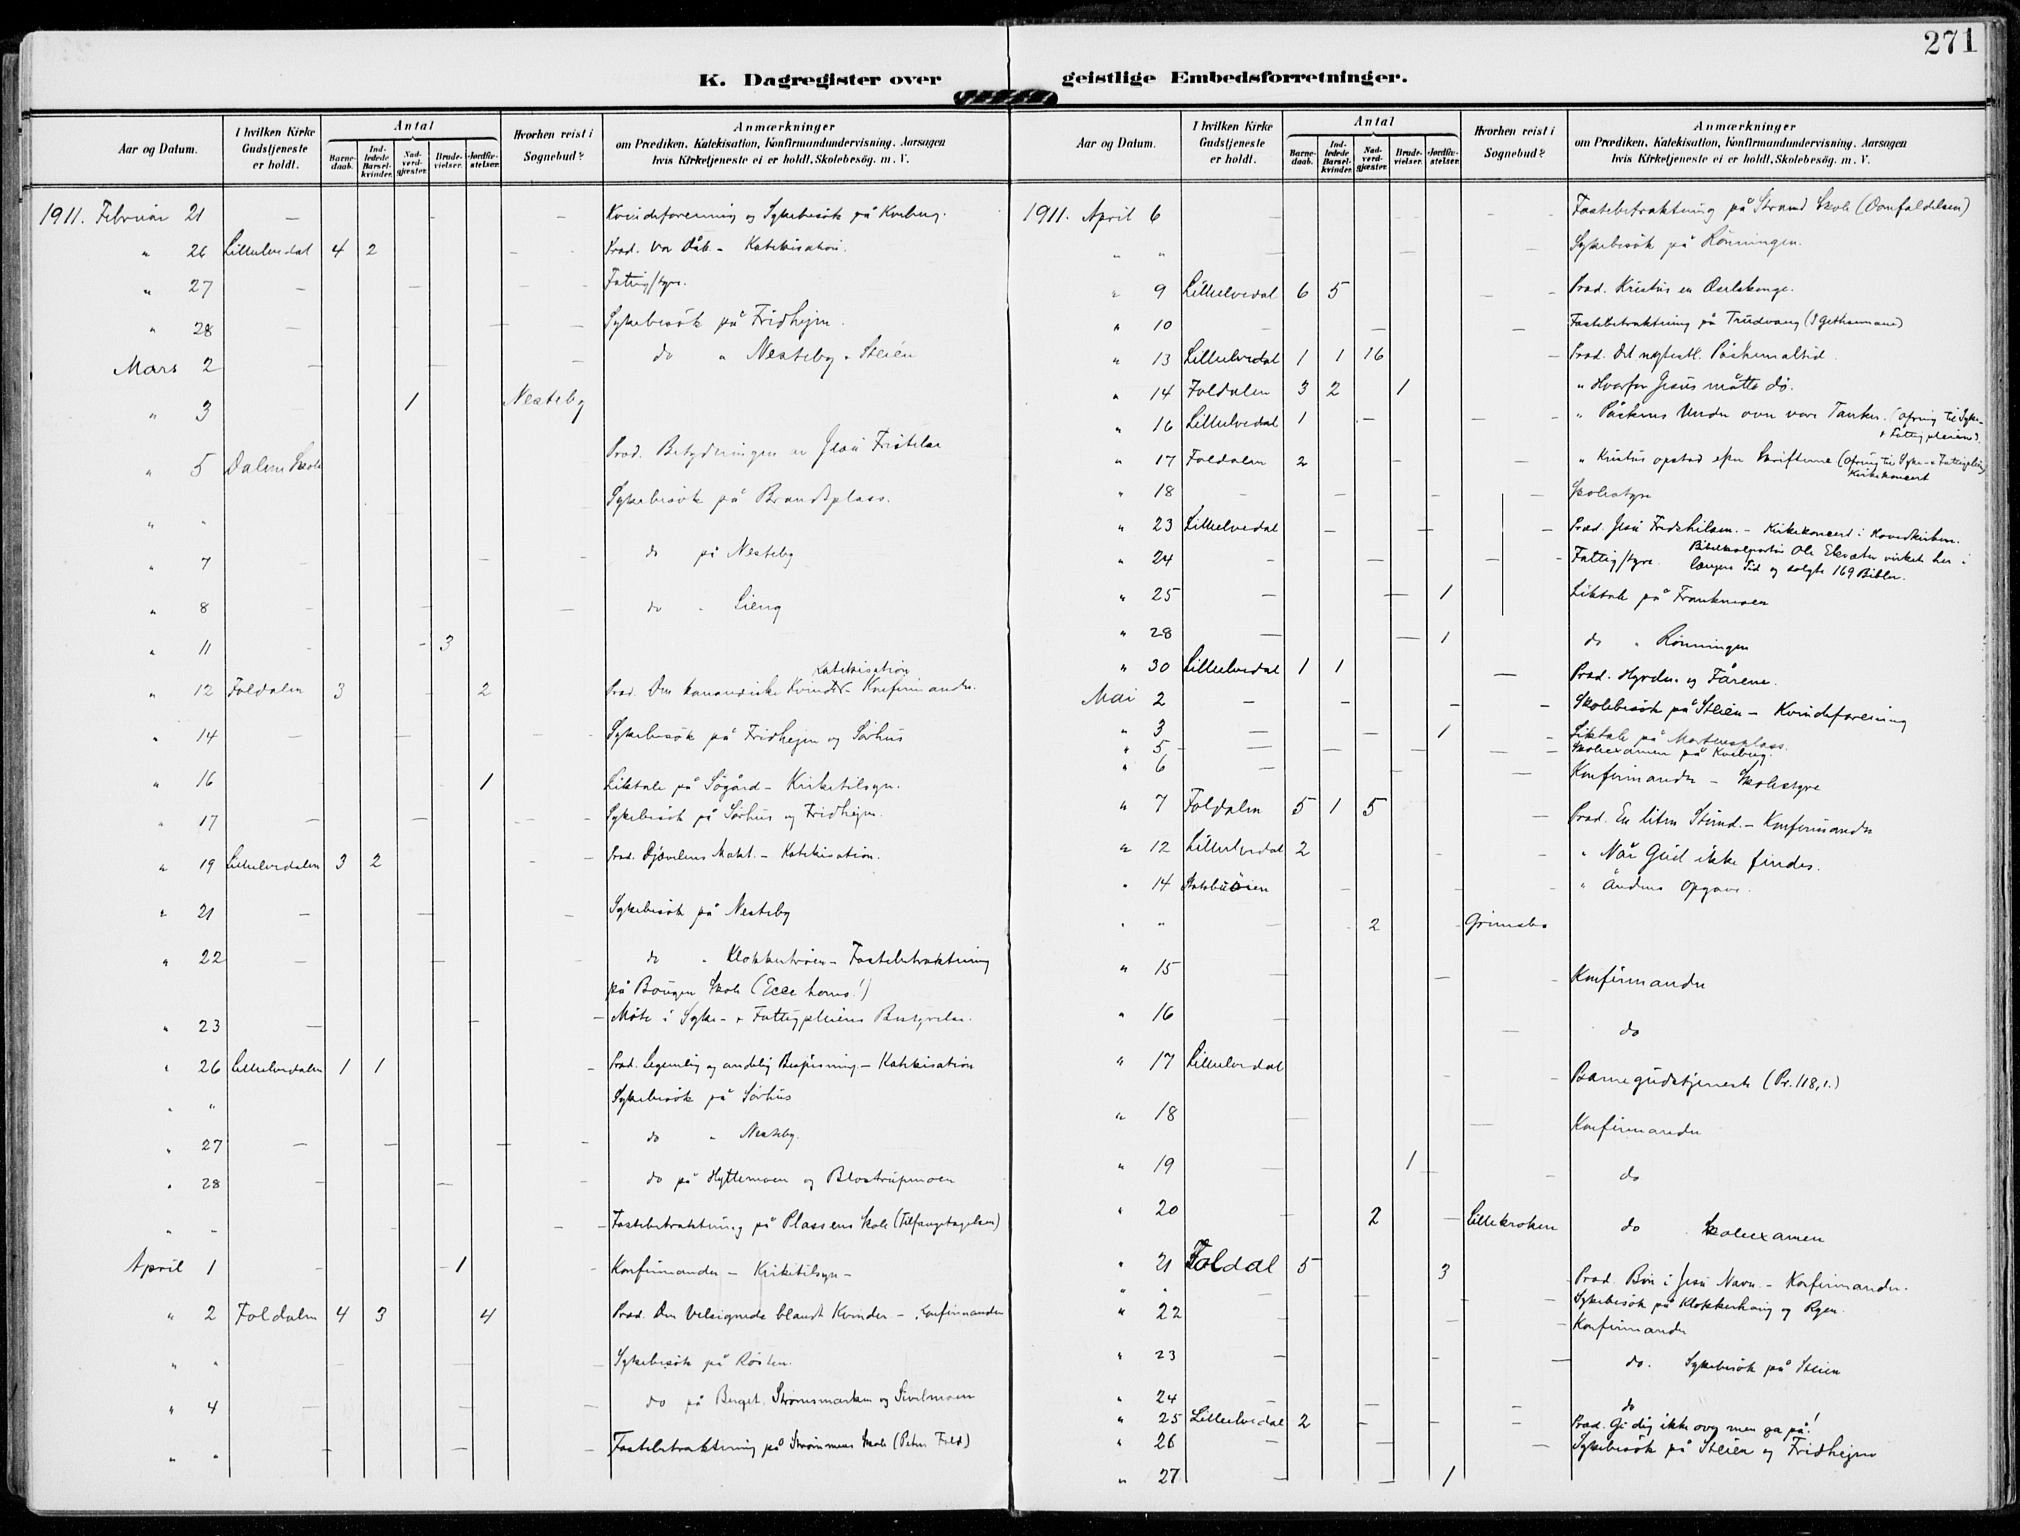 271
K. Dagregister over geistlige Embedsforretninger.
Aar og Datum. I hvilken Kirke Gudstjeneste er holdt. Antal Barnedaab. Indledede Barselkvinder. Nadverdgjæster. Brudevielser. Jordfæstelser. Hvorhen reist i Sognebud? Anmærkninger om Prædiken, Katekisation, Konfirmandundervisning, Aarsagen hvis Kirketjeneste ei er holdt, Skolebesøg, m. V.
1911. Februar 21 — — — Kvindeforening og Sykebesök på Kveberg.
" 26 Lilleelvedal 4 2 — — Præd. Vor Dåb — Katekisation.
" 27 — — — — Fattigstyre.
" 28 — — — — Sykebesök på Fridhejm.
Mars 2 — — — do " Nesteby - Steien
" 3 — 1 Nesteby
" 5 Dalen Skole Præd. Betydningen av Jesu Fristelse
" " — Sykebesök på Brandtplass.
" 7 — — — do på Nesteby
" 8 — — — do " Lieng
" 11 — — 3
" 12 Foldalen 3 — 2 Præd. Den kananæiske Kvinde — Katekisation Konfirmander.
" 14 — — — Sykebesök på Fridhejm og Sörhus
" 16 — — 1 Liktale på Sögård — Kirketilsyn.
" 17 — — — — Sykebesök på Sörhus og Fridhejm.
" 19 Lilleelvedalen 3 2 — — Præd. Djævelens Makt. — Katekisation.
" 21 — — — Sykebesök på Nesteby
" 22 — — — do " Klokkertröen — Fastebetraktning
på Bougen Skole (Ecce homo!)
" 23 — — — Möte i Syke- + Fattigpleiens Bestyrelse.
" 26 Lilleelvedalen 1 1 — Præd. Legemlig og andelig Bespisning — Katekisation
" " Sykebesök på Sörhus
" 27 — — — — do " Nesteby.
" 28 — — — do på Hyttemoen og Blostrupmoen
" " — — — Fastebetraktning på Plassens Skole (Tilfangetagelsen)
April 1 — — 1 — Konfirmander — Kirketilsyn —
" 2 Foldalen 4 3 4 Præd. Den Velsignede blandt Kvinder. — Konfirmander
" " — — — Sykebesök på Rösten.
" 4 — — — do på Berget, Strömsmarken og Sivilmoen
" " — — — Fastebetraktning på Strömmens Skole (Peters Fald)
Aar og Datum. I hvilken Kirke Gudstjeneste er holdt. Antal Barnedaab. Indledede Barselkvinder. Nadverdgjæster. Brudevielser. Jordfæstelser. Hvorhen reist i Sognebud? Anmærkninger om Prædiken, Katekisation, Konfirmandundervisning, Aarsagen hvis Kirketjeneste ei er holdt, Skolebesøg, m. V.
1911. April 6 — — — — Fastebetraktning på Strand Skole (Domfældelsen)
" " — — — Sykebesök på Rönningen.
" 9 Lilleelvedal 6 5 — — Præd. Kristus en Æreskonge.
" 10 — — — — Fastebetraktning på Trudvang (I Gethsemane)
" 13 Lilleelvedal 1 1 16 — Præd. Det nytestl. Påskemaltid.
" 14 Foldalen 3 2 1 " Hvorfor Jesus måtte dö.
" 16 Lilleelvedal 1 — — — " Påskens Under over vore Tanker. (Ofring til Syke-
+ Fattigpleien).
" 17 Foldalen 2 — — — " Kristus opstod efter Skrifterne (Ofring til Syke- + Fattigpleien)
Kirkekoncert
" 18 — — — — Skolestyre
" 23 Lilleelvedal — — — Præd. Jesu Fredshilsen. — Kirkekoncert i Hovedkirken.
" 24 — — — — Fattigstyre. Bibelkolportör Ole Ekrætr virket her i
længere Tid og solgte 169 Bibler.
" 25 — — 1 Liktale på Frankmoen
" 28 — — 1 do " Rönningen
" 30 Lilleelvedal 1 1 — Præd. Hyrden og Fårene.
Mai 2 — — — — Skolebesök på Steien — Kvindeforening
" 3 — — 1 Liktale på
" 5 — — — — — — Skoleexamen på Kveberg.
" 6 — — — Konfirmander — Skolestyre
" 7 Foldalen 5 1 5 — Præd. En liten Stund. — Konfirmander
" 12 Lilleelvedal 2 — — — " Når Gud ikke findes.
" 14 — — — " Åndens Opgave.
" " 2 — Grimsbo
" 15 — — — Konfirmander
" 16 — — do
" 17 Lilleelvedal — — Barnegudstjeneste (Ps. 118,1.)
" 18 — — — Konfirmander
" 19 — 1 — — do
" 20 2 — Lillekroken do Skoleexamen
" 21 Foldal 5 3 — Præd. Bön i Jesu Navn. — Konfirmander.
" " — — — — Sykebesök på Klokkerhaug og Ryen.
" 22 — — Konfirmander
" 23 — — — do. Sykebesök på Steien
" 24 — — — do
" 25 Lilleelvedal 2 — — Præd. Gi dig ikke over men ga på!
" 26 — — — Sykebesök på Steien og Fridhejm
" 27 — — 1